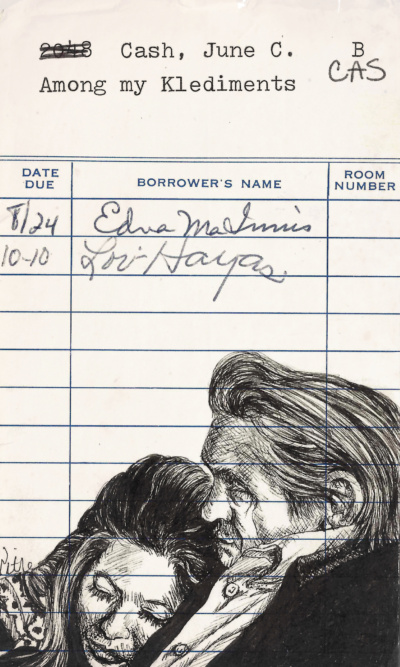 2048 Cash, June C. B
CAS
Among my Klediments
DATE DUE
BORROWER'S NAME
ROOM NUMBER
8/24 Edna MacInnis
10-10 Lori Hayas